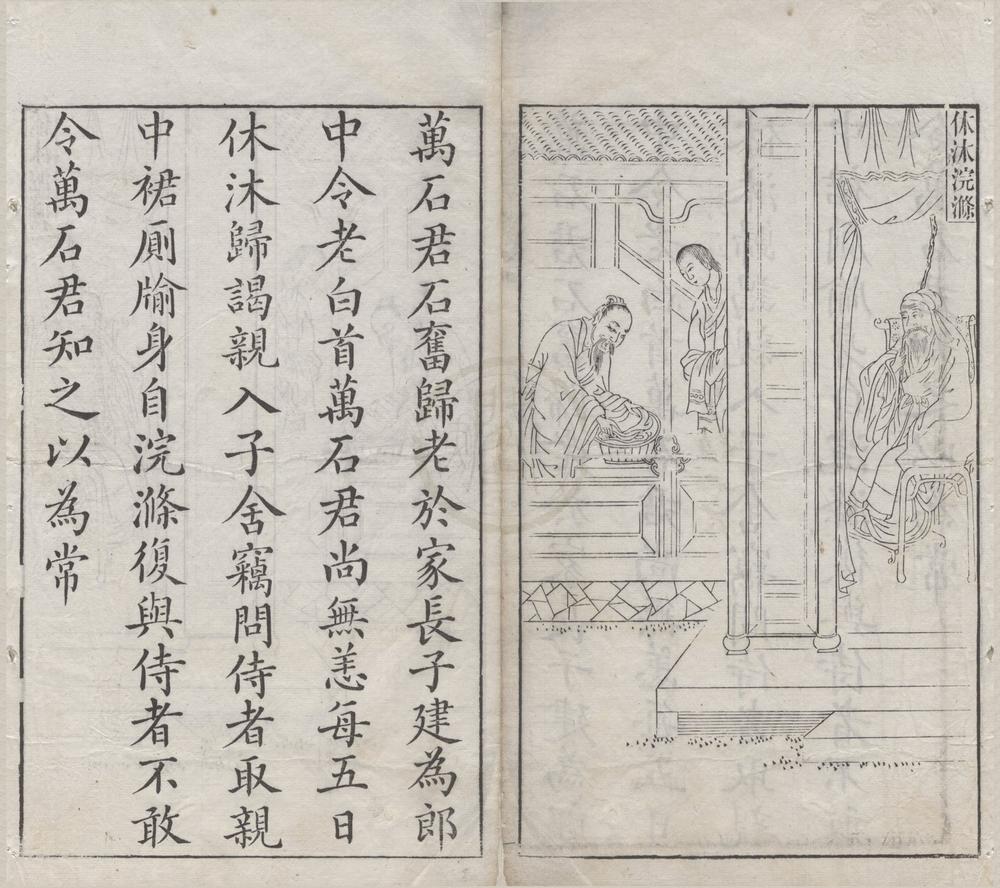 休沐浣滌
萬石君石奮歸老於家長子建為郎
中令老白首萬石君尚無恙每五日
休沐歸謁親入子舍竊問侍者取親
中裙厠牏身自浣滌復與侍者不敢
令萬石君知之以為常